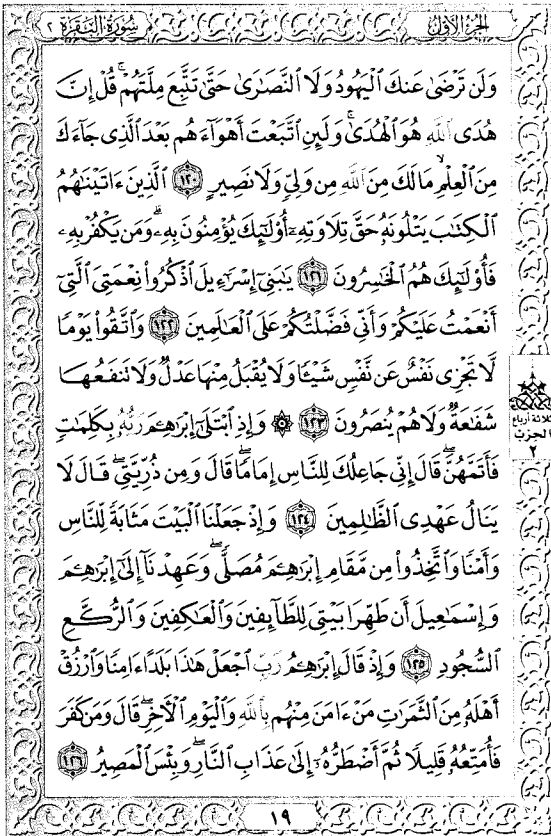 سُورَةُ البَقَرَةِ ٢
الجُزْءُ الأَوَّلُ
وَلَن تَرْضَىٰ عَنكَ الْيَهُودُ وَلَا النَّصَارَىٰ حَتَّىٰ تَتَّبِعَ مِلَّتَهُمْ ۗ قُلْ إِنَّ
هُدَى اللَّهِ هُوَ الْهُدَىٰ ۗ وَلَئِنِ اتَّبَعْتَ أَهْوَاءَهُم بَعْدَ الَّذِي جَاءَكَ
مِنَ الْعِلْمِ ۙ مَا لَكَ مِنَ اللَّهِ مِن وَلِيٍّ وَلَا نَصِيرٍ ١٢٠ الَّذِينَ ءَاتَيْنَٰهُمُ
الْكِتَٰبَ يَتْلُونَهُ حَقَّ تِلَاوَتِهِ أُو۟لَٰٓئِكَ يُؤْمِنُونَ بِهِ ۗ وَمَن يَكْفُرْ بِهِ
فَأُو۟لَٰٓئِكَ هُمُ الْخَٰسِرُونَ ١٢١ يَٰبَنِىٓ إِسْرَٰٓءِيلَ اذْكُرُوا۟ نِعْمَتِىَ الَّتِىٓ
أَنْعَمْتُ عَلَيْكُمْ وَأَنِّى فَضَّلْتُكُمْ عَلَى الْعَٰلَمِينَ ١٢٢ وَاتَّقُوا۟ يَوْمًا
لَّا تَجْزِى نَفْسٌ عَن نَّفْسٍ شَيْـًٔا وَلَا يُقْبَلُ مِنْهَا عَدْلٌ وَلَا تَنفَعُهَا
شَفَٰعَةٌ وَلَا هُمْ يُنصَرُونَ ١٢٣ ۞ وَإِذِ ابْتَلَىٰٓ إِبْرَٰهِـۧمَ رَبُّهُ بِكَلِمَٰتٍ
فَأَتَمَّهُنَّ ۖ قَالَ إِنِّى جَاعِلُكَ لِلنَّاسِ إِمَامًا ۖ قَالَ وَمِن ذُرِّيَّتِى ۖ قَالَ لَا
يَنَالُ عَهْدِى الظَّٰلِمِينَ ١٢٤ وَإِذْ جَعَلْنَا الْبَيْتَ مَثَابَةً لِّلنَّاسِ
وَأَمْنًا وَاتَّخِذُوا۟ مِن مَّقَامِ إِبْرَٰهِـۧمَ مُصَلًّى ۖ وَعَهِدْنَآ إِلَىٰٓ إِبْرَٰهِـۧمَ
وَإِسْمَٰعِيلَ أَن طَهِّرَا بَيْتِىَ لِلطَّآئِفِينَ وَالْعَٰكِفِينَ وَالرُّكَّعِ
السُّجُودِ ١٢٥ وَإِذْ قَالَ إِبْرَٰهِـۧمُ رَبِّ اجْعَلْ هَٰذَا بَلَدًا ءَامِنًا وَارْزُقْ
أَهْلَهُ مِنَ الثَّمَرَٰتِ مَنْ ءَامَنَ مِنْهُم بِاللَّهِ وَالْيَوْمِ الْءَاخِرِ ۖ قَالَ وَمَن كَفَرَ
فَأُمَتِّعُهُ قَلِيلًا ثُمَّ أَضْطَرُّهُ إِلَىٰ عَذَابِ النَّارِ ۖ وَبِئْسَ الْمَصِيرُ ١٢٦
ثلاثة أرباع
الحزب
٢
١٩